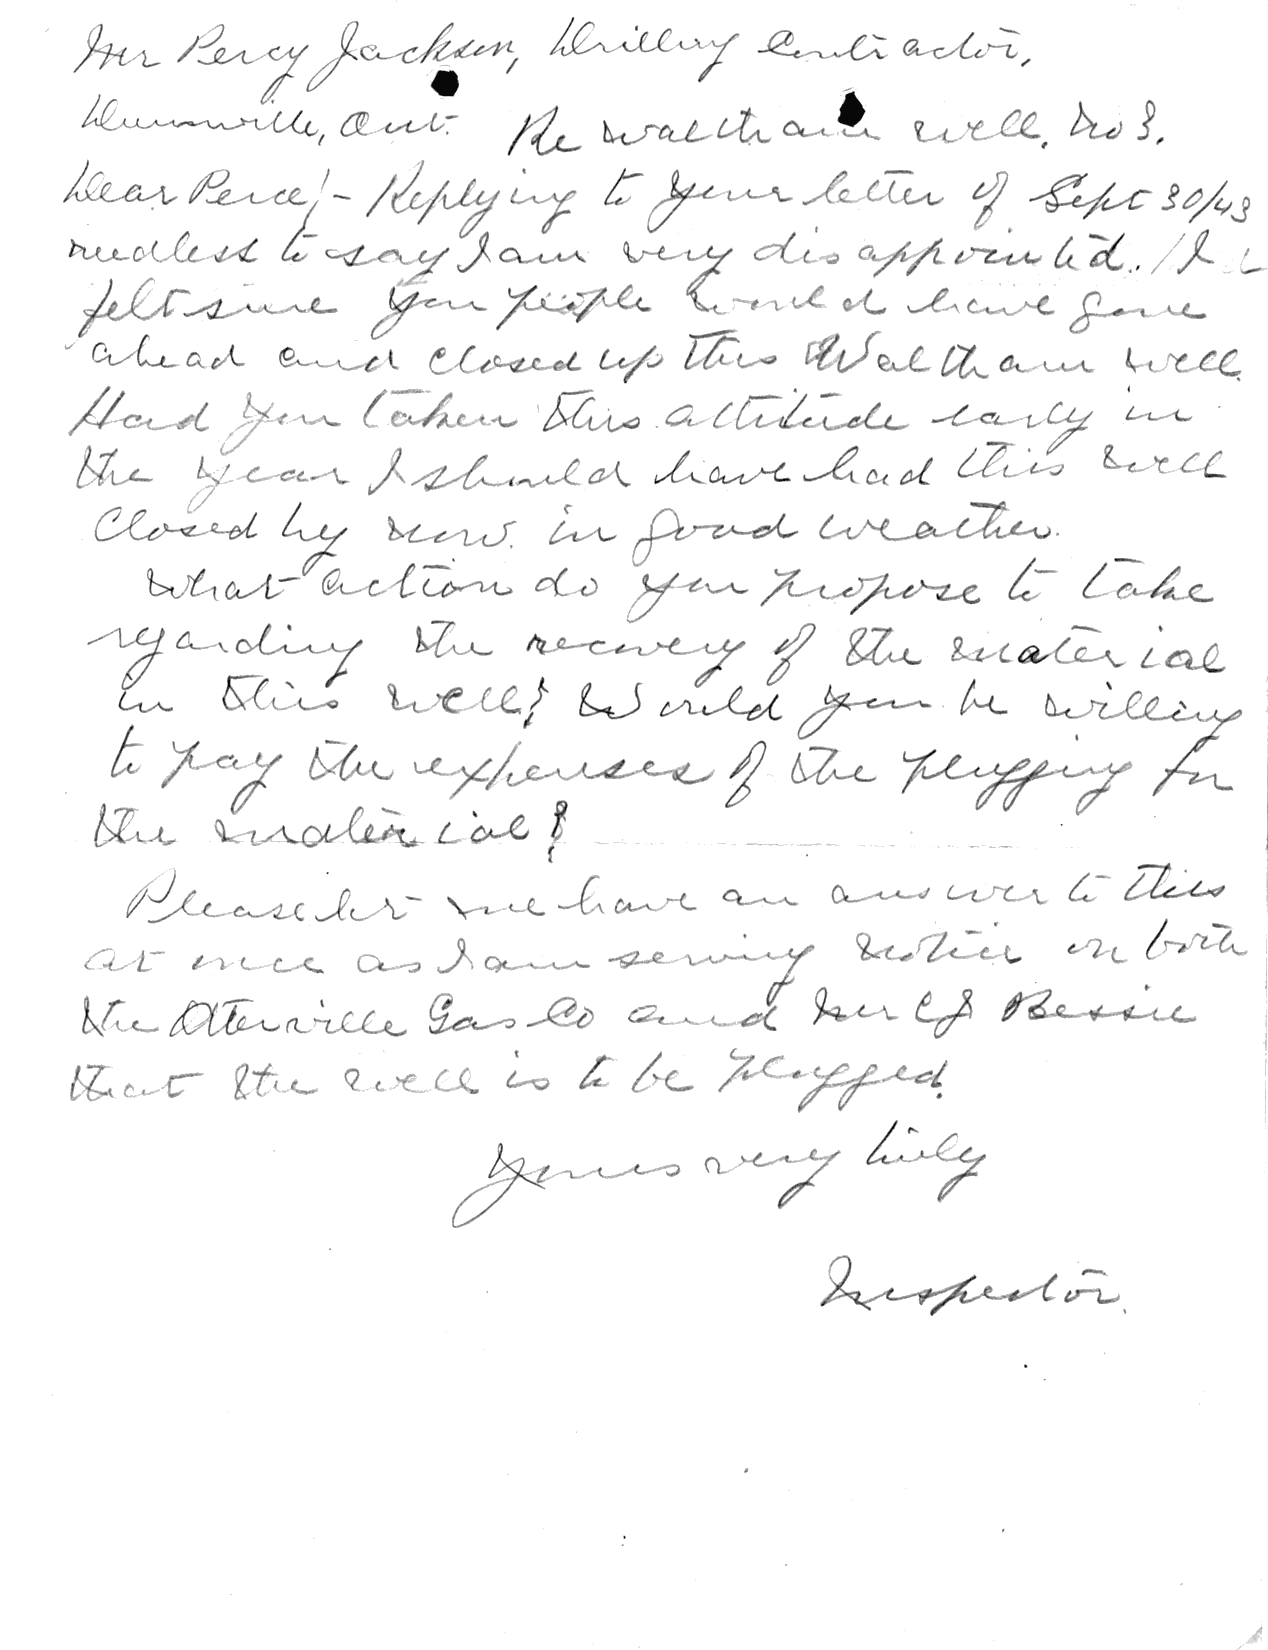 Mr Percy Jackson, Drilling Contractor,
Dunnville, Ont. Re Waltham well, No 3.
Dear Perce!- Replying to your letter of Sept 30/43
needless to say I am very disappointed. I
felt sure you people would have gone
ahead and closed up this Waltham well.
Had you taken this attitude early in
the year I should have had this well
closed by now in good weather.
What action do you propose to take
regarding the recovery of the material
in this well? Would you be willing
to pay the expenses of the plugging for
the material?
Please let me have an answer to this
at once as I am serving notice on both
the Otterville Gas Co and Mr C J Bessie
that the well is to be plugged.
Yours very truly
Inspector.